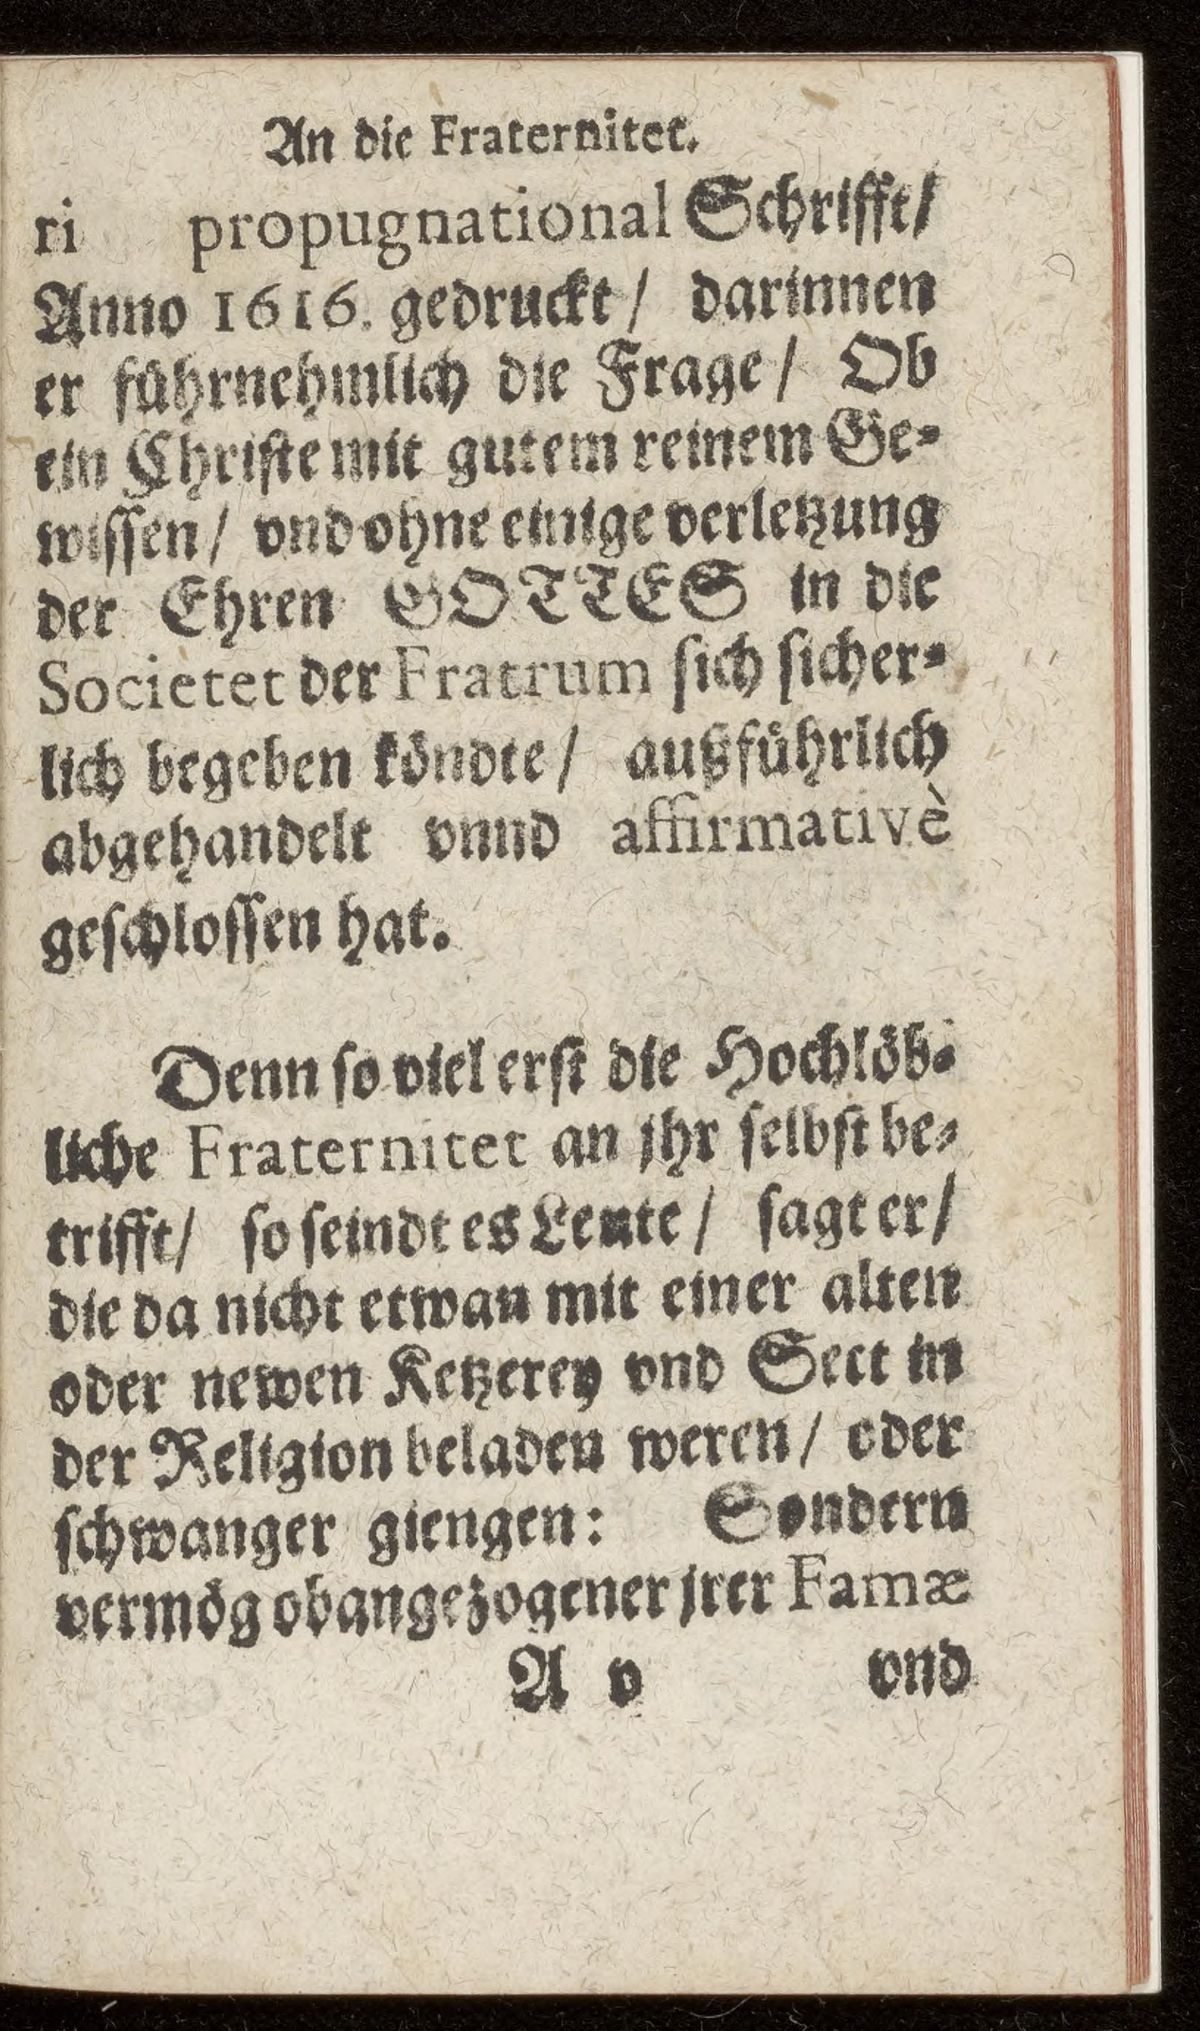 An die Fraternitet.
ri propugnational Schrifft/
Anno 1616. gedruckt/ darinnen
er führnehmlich die Frage/ Ob
ein Christe mit gutem reinem Ge-
wissen/ vnd ohne einige verletzung
der Ehren GOTTES in die
Societet der Fratrum sich sicher-
lich begeben köndte/ außführlich
abgehandelt vnnd affirmativè
geschlossen hat.
Denn so viel erst die Hochlöb-
liche Fraternitet an jhr selbst be-
trifft/ so seindt es Leute/ sagt er/
die da nicht etwan mit einer alten
oder newen Ketzerey vnd Sect in
der Religion beladen weren/ oder
schwanger giengen: Sondern
vermög obangezogener jrer Famæ
A v vnd